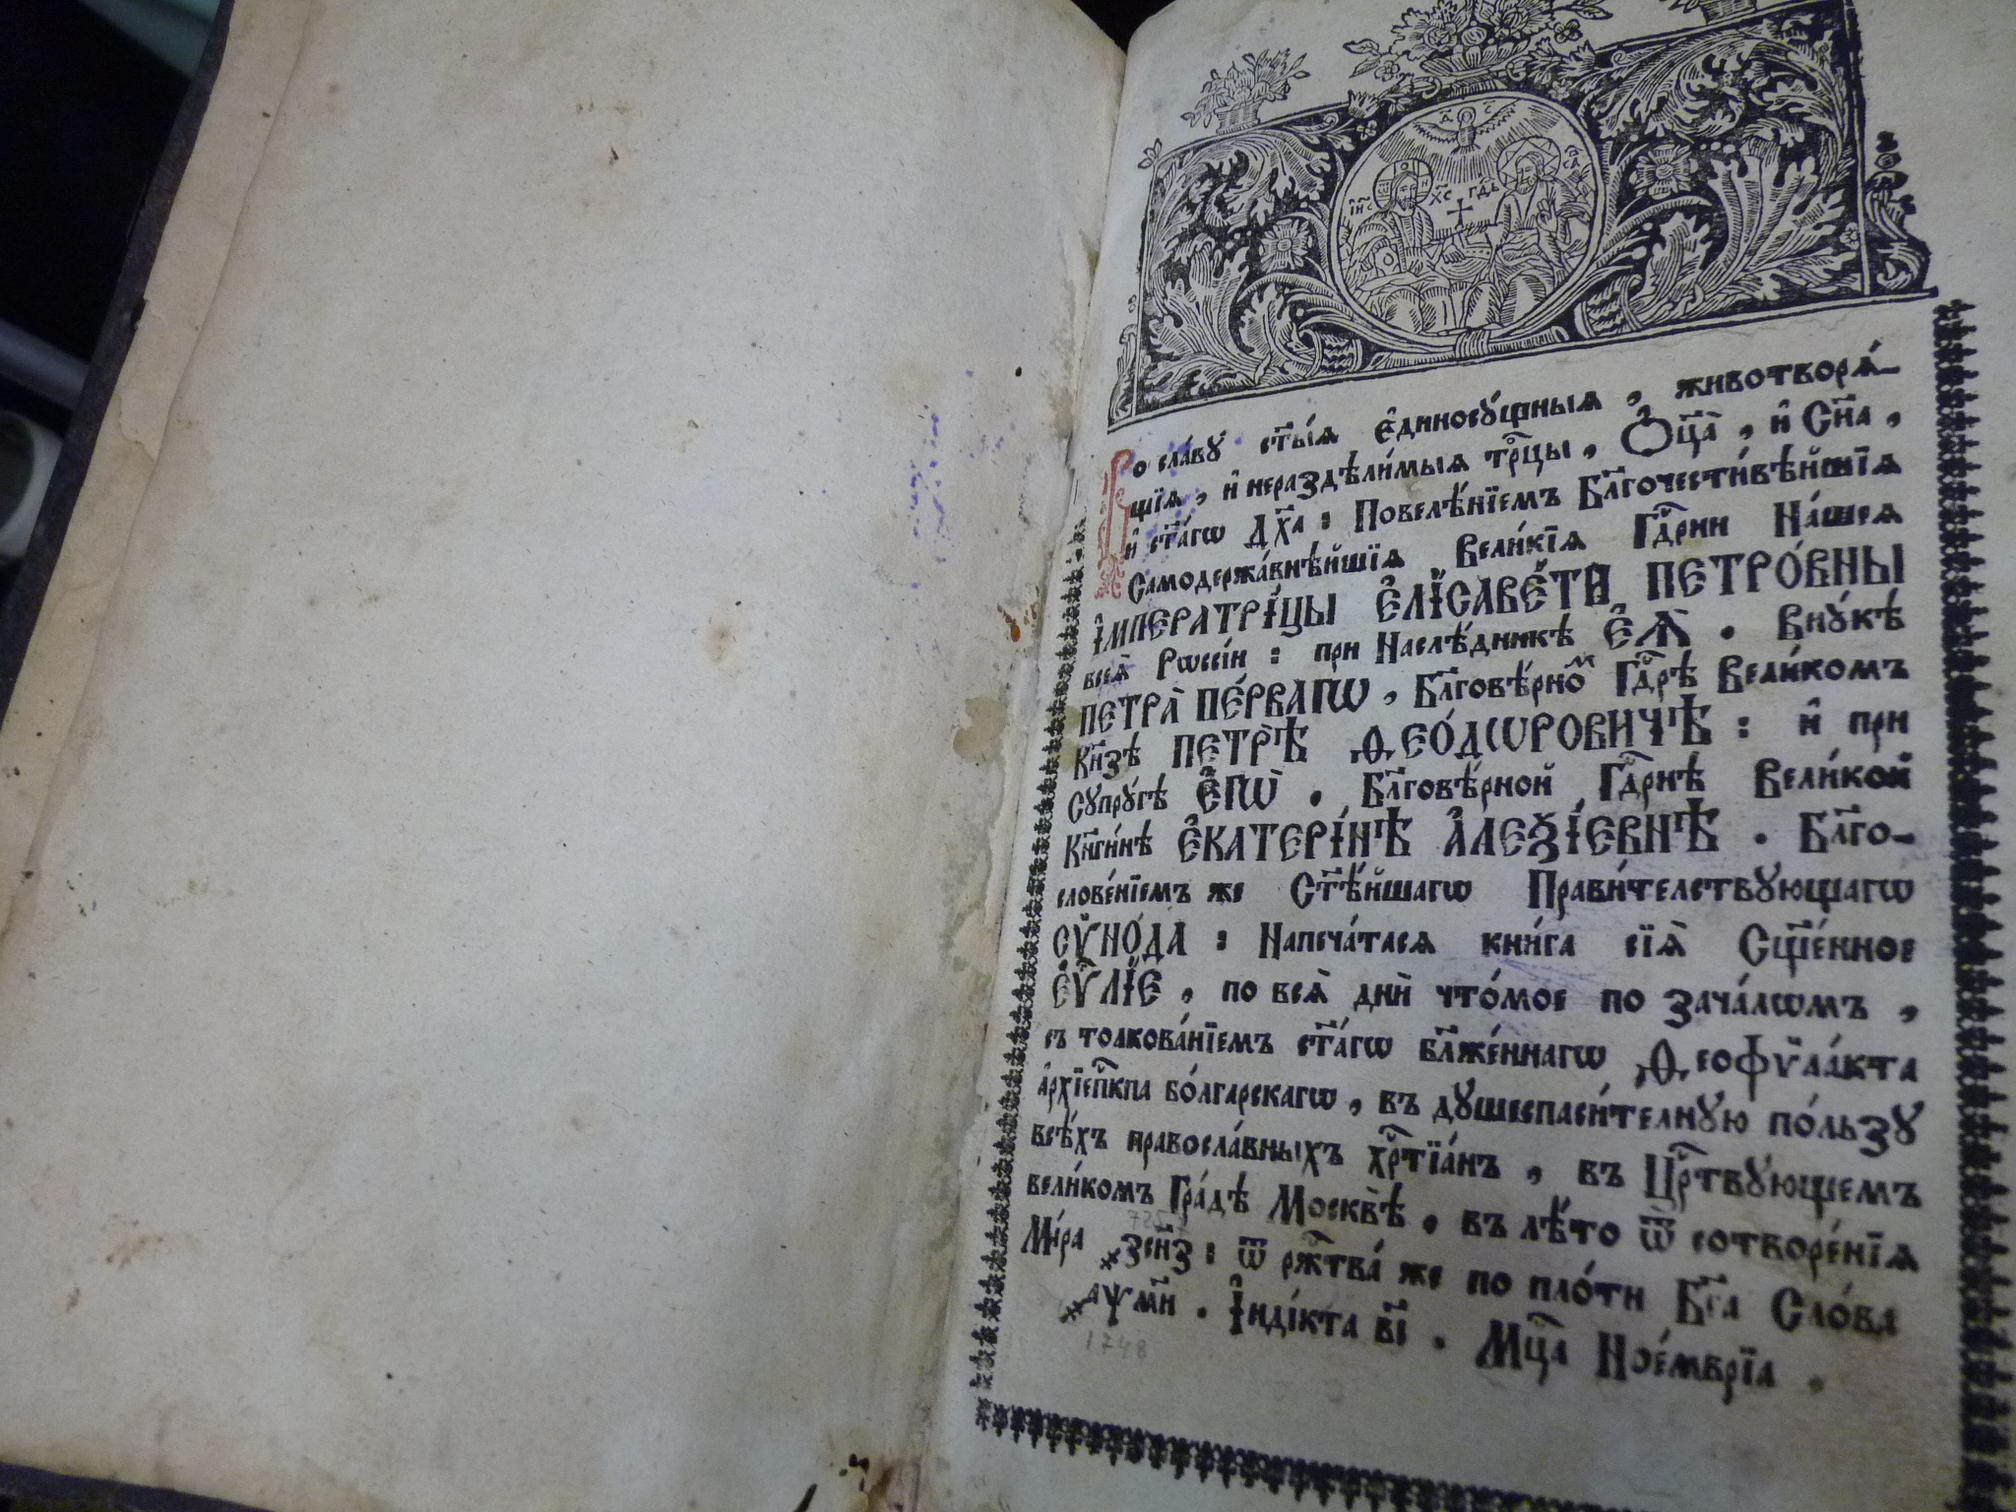 І҆И҃С Х҃С ГД҃Ь СА҃
Во сла́вꙋ ст҃ы́ѧ є҆диносꙋ́щныѧ , животворѧ́-
щїѧ , и҆ нераздѣли́мыѧ трⷪ҇цы , Ѻ҆ц҃а̀ , и҆ Сн҃а ,
и҆ ст҃а́гѡ Дх҃а : Повелѣ́нїемъ Бл҃гочести́вѣйшїѧ
Самодержа́внѣйшїѧ Вели́кїѧ Гдⷭ҇рни На́шеѧ
І҆МПЕРАТРІ́ЦЫ Є҆ЛІСАВЕ́ТИ ПЕТРО́ВНЫ
всеѧ̀ Рѡссі́и : при Наслѣ́дникѣ Є҆Ѧ̀ . Внꙋ́кѣ
ПЕТРА̀ ПЕ́РВАГѠ , Бл҃говѣ́рноⷨ Гдⷭ҇рѣ́ Вели́комъ
Кн҃зѣ ПЕТРѢ̀ Ѳ҆ЕО́ДѠРОВИЧѢ : и҆ при
Сꙋпрꙋ́гѣ Є҆ГѠ̀ . Бл҃говѣ́рной Гдⷭ҇рнѣ Вели́кой
Кн҃ги́нѣ Є҆КАТЕРІ́НѢ А҆ЛЕѮІ́ЕВНѢ . Бл҃го-
слове́нїемъ же Ст҃ѣ́йшагѡ Прави́телствꙋющагѡ
СѴ̈НО́ДА : Напеча́тасѧ кни́га сїѧ̀ Сщ҃е́нное
Є҆ѴⷢЛІЕ , по всѧ̀ дни̑ что́мое по зача́лѡмъ ,
съ толкова́нїемъ ст҃а́гѡ бл҃же́ннагѡ Ѳ҆еофѷла́кта
а҆рхїеп҃кпа бо́лгарскагѡ , въ дꙋшеспаси́телнꙋю по́льзꙋ
всѣ́хъ правосла́вныхъ хрⷭ҇тїа́нъ , въ Црⷭ҇твꙋющемъ
вели́комъ Гра́дѣ Москвѣ̀ , въ лѣ́то ѿ сотворе́нїѧ
Мі́ра ҂зсн҃з : ѿ ржⷭ҇тва́ же по пло́ти Бг҃а Сло́ва
7257
҂аѱм҃и . І҆нді́кта в҃і . Мцⷭ҇а Ное́мврїа .
1748